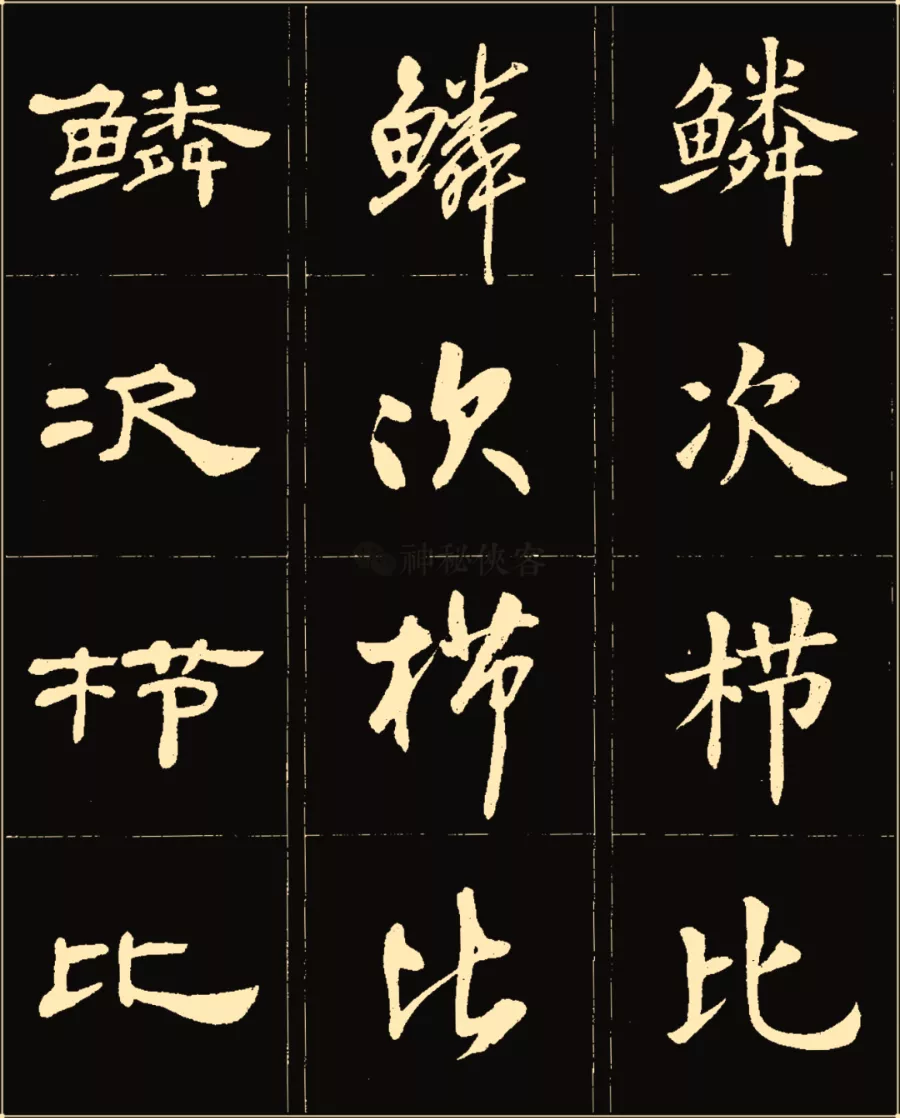 鳞 鳞 鳞
次 次 次
栉 栉 栉
比 比 比
神秘侠客